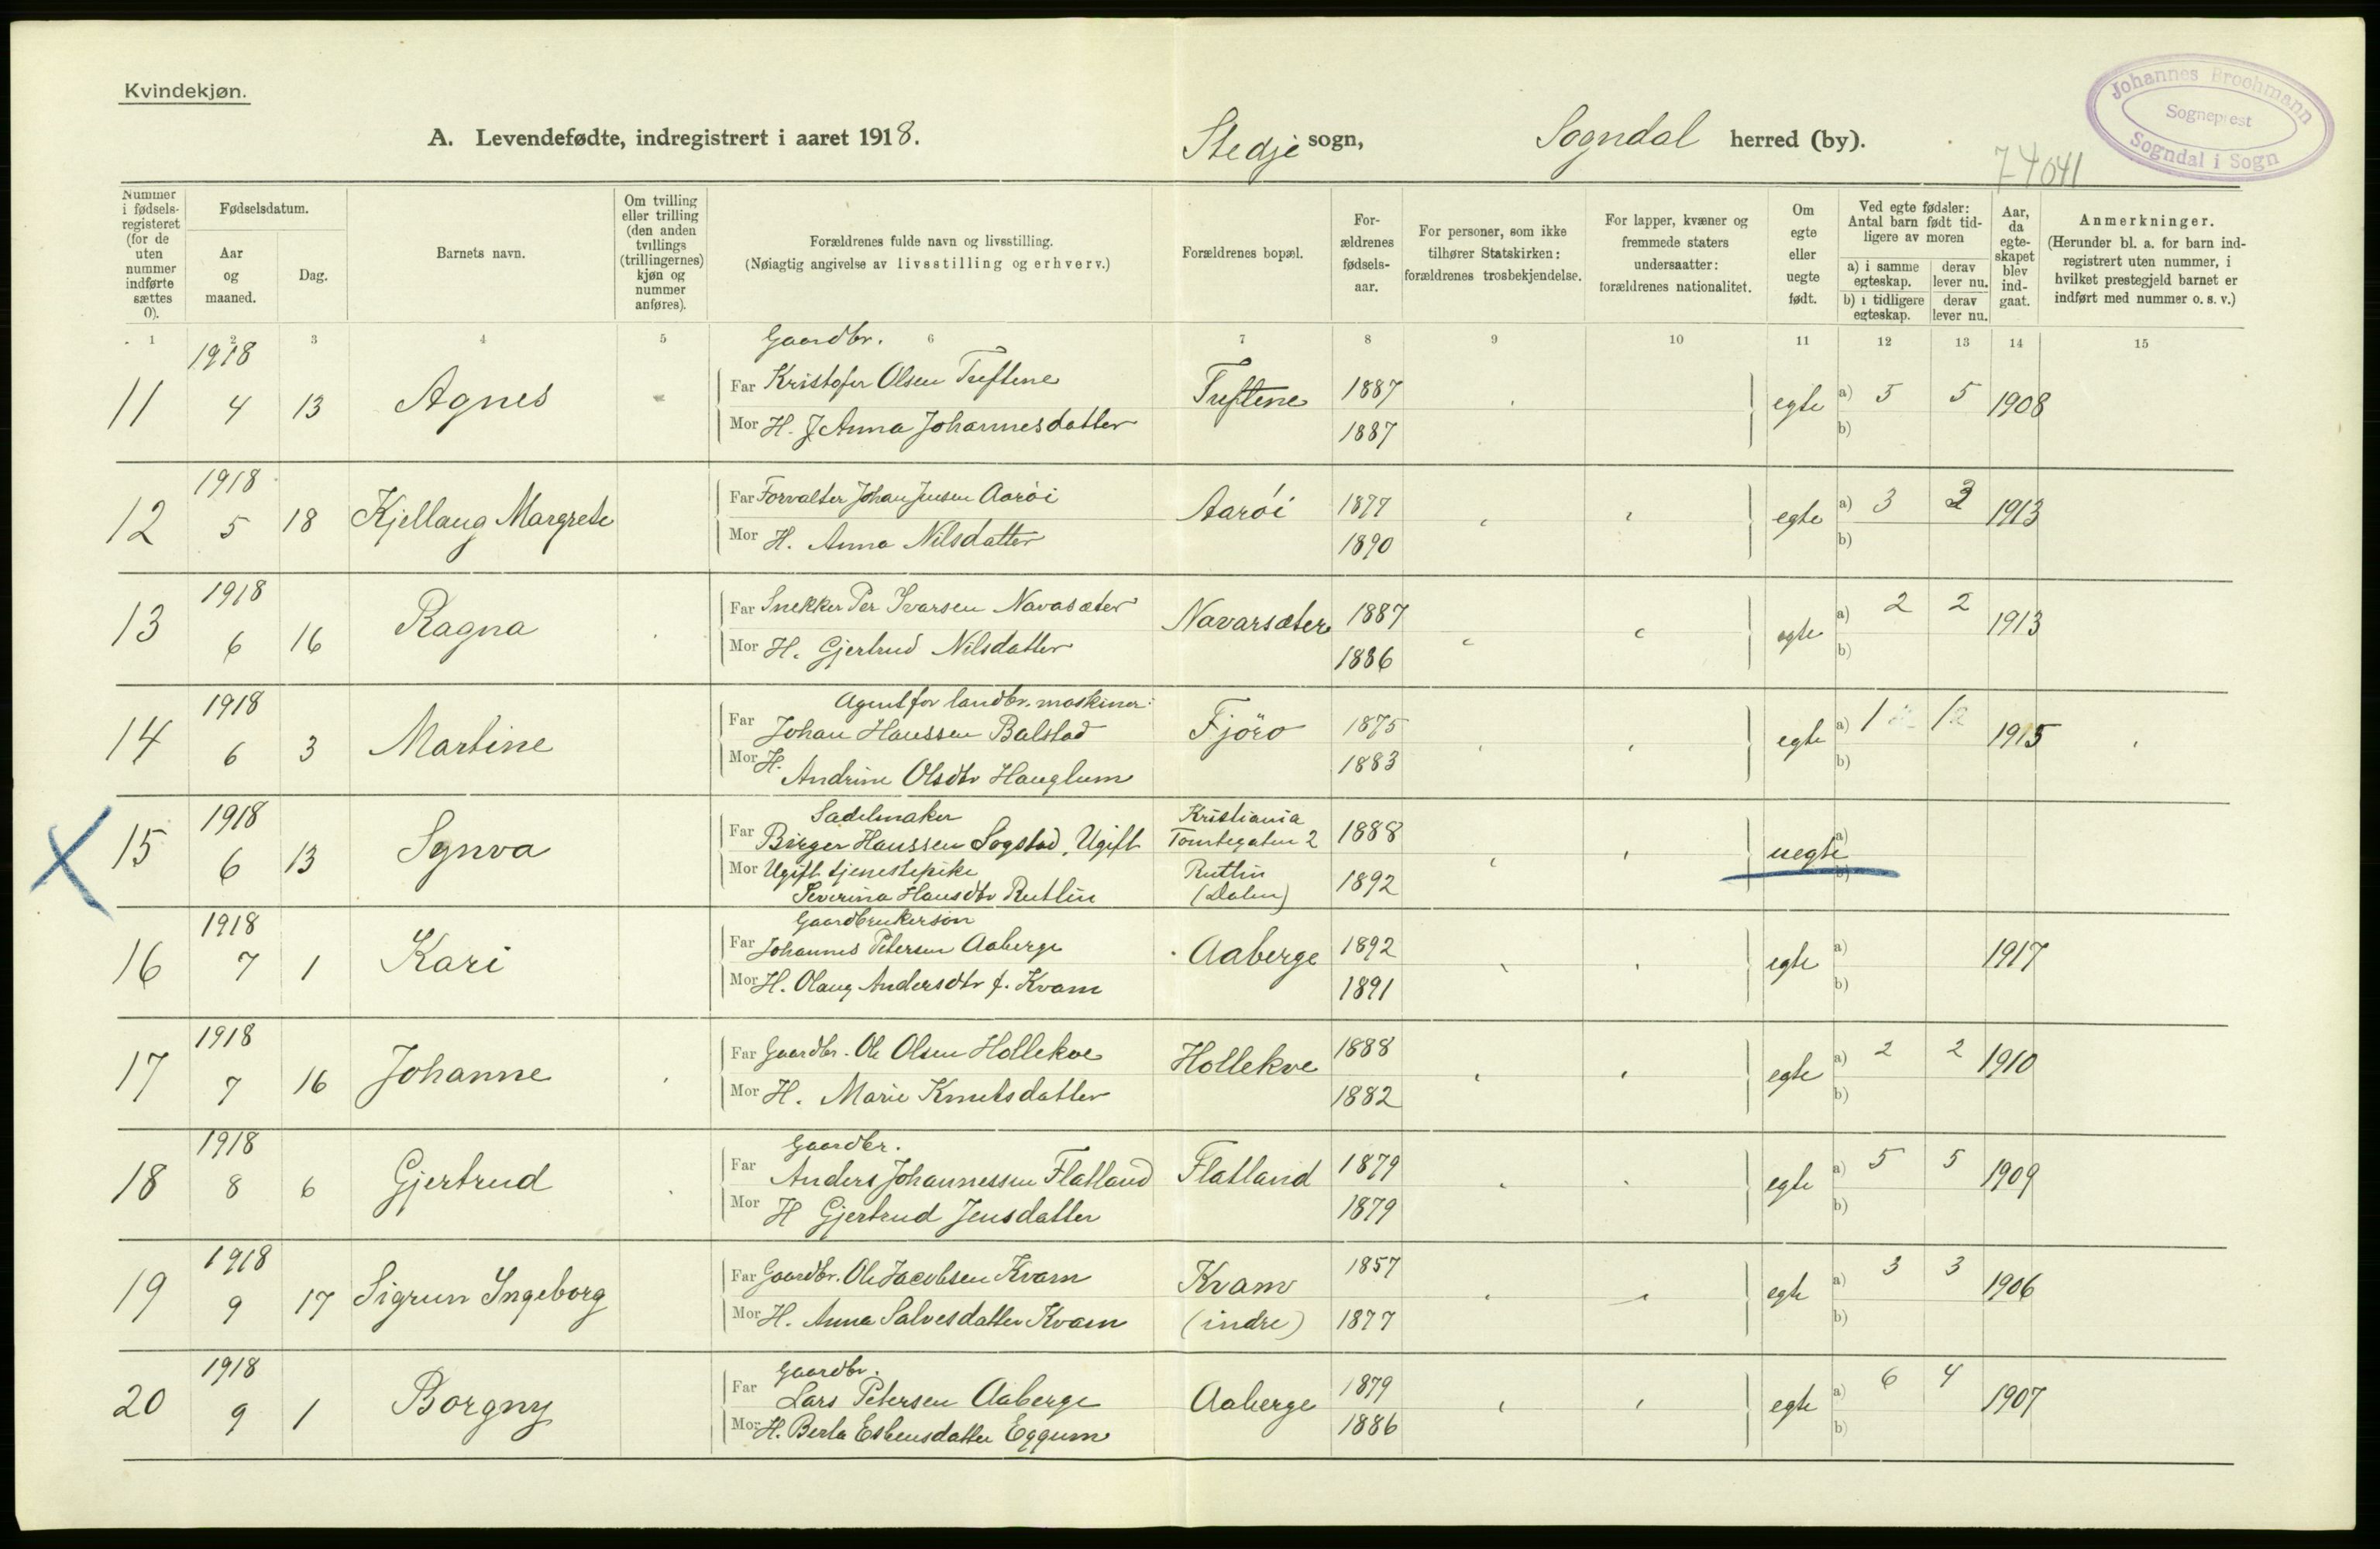 Kvindekjøn.
A. Levendefødte, indregistrert i aaret 1918. Stedje sogn, Sogndal herred (by).
Johannes Brochmann
Sogneprest
Sogndal i Sogn
74041
Nummer i fødsels-registeret (for de uten nummer indførte sættes 0).
Fødselsdatum.
Aar og maaned.
Dag.
Barnets navn.
Om tvilling eller trilling (den anden tvillings (trillingernes) kjøn og nummer anføres).
Forældrenes fulde navn og livsstilling.
(Nøiagtig angivelse av livsstilling og erhverv.)
Forældrenes bopæl.
For-ældrenes fødsels-aar.
For personer, som ikke tilhører Statskirken: forældrenes trosbekjendelse.
For lapper, kvæner og fremmede staters undersaatter: forældrenes nationalitet.
Om egte eller uegte født.
Ved egte fødsler: Antal barn født tid-ligere av moren
a) i samme egteskap. derav lever nu.
b) i tidligere egteskap. derav lever nu.
Aar, da egte-skapet blev ind-gaat.
Anmerkninger.
(Herunder bl. a. for barn ind-registrert uten nummer, i hvilket prestegjeld barnet er indført med nummer o. s. v.)
1 2 3 4 5 6 7 8 9 10 11 12 13 14 15
Gaardbr.
1918
11 4 13 Agnes Far Kristofer Olsen Tuftene Tuftene 1887 egte a) 5 5 1908
Mor H. J. Anna Johannesdatter 1887 b)
1918
12 5 18 Kjellaug Margrete Far Forvalter Johan Jensen Aarøi Aarøi 1877 egte a) 3 3 1913
Mor H. Anna Nilsdatter 1890 b)
1918
13 6 16 Ragna Far Snekker Per Ivarsen Navasæter Navarsæter 1887 egte a) 2 2 1913
Mor H. Gjertrud Nilsdatter 1886 b)
1918 Agent for landbr. maskiner
14 6 3 Martine Far Johan Hanssen Balstad Fjöro 1875 egte a) 1 1 1915
Mor H. Andrine Olsdtr Hauglum 1883 b)
1918 Sadelmaker Kristiania
15 6 13 Synva Far Birger Hanssen Sogstad, Ugift Tomtegaten 2 1888 uegte a)
Mor Ugift tjenestepike Rutlin
Severina Hansdtr Rutlin (Dalen) 1892 b)
1918 Gaardbrukersön
16 7 1 Kari Far Johannes Petersen Aaberge Aaberge 1892 egte a) 1917
Mor H. Olaug Andersdtr f. Kvam 1891 b)
1918
17 7 16 Johanne Far Gaardbr. Ole Olsen Hollekve Hollekve 1888 egte a) 2 2 1910
Mor H. Marie Knutsdatter 1882 b)
1918 Gaardbr.
18 8 6 Gjertrud Far Anders Johannessen Flatland Flatland 1879 egte a) 5 5 1909
Mor H Gjertrud Jensdatter 1879 b)
1918
19 9 17 Sigrun Ingeborg Far Gaardbr. Ole Jacobsen Kvam Kvam 1857 egte a) 3 3 1906
Mor H. Anna Salvesdatter Kvam (indre) 1877 b)
1918 Gaardbr.
20 9 1 Borgny Far Lars Petersen Aaberge Aaberge 1879 egte a) 6 4 1907
Mor H. Berta Esbensdatter Eggum 1886 b)